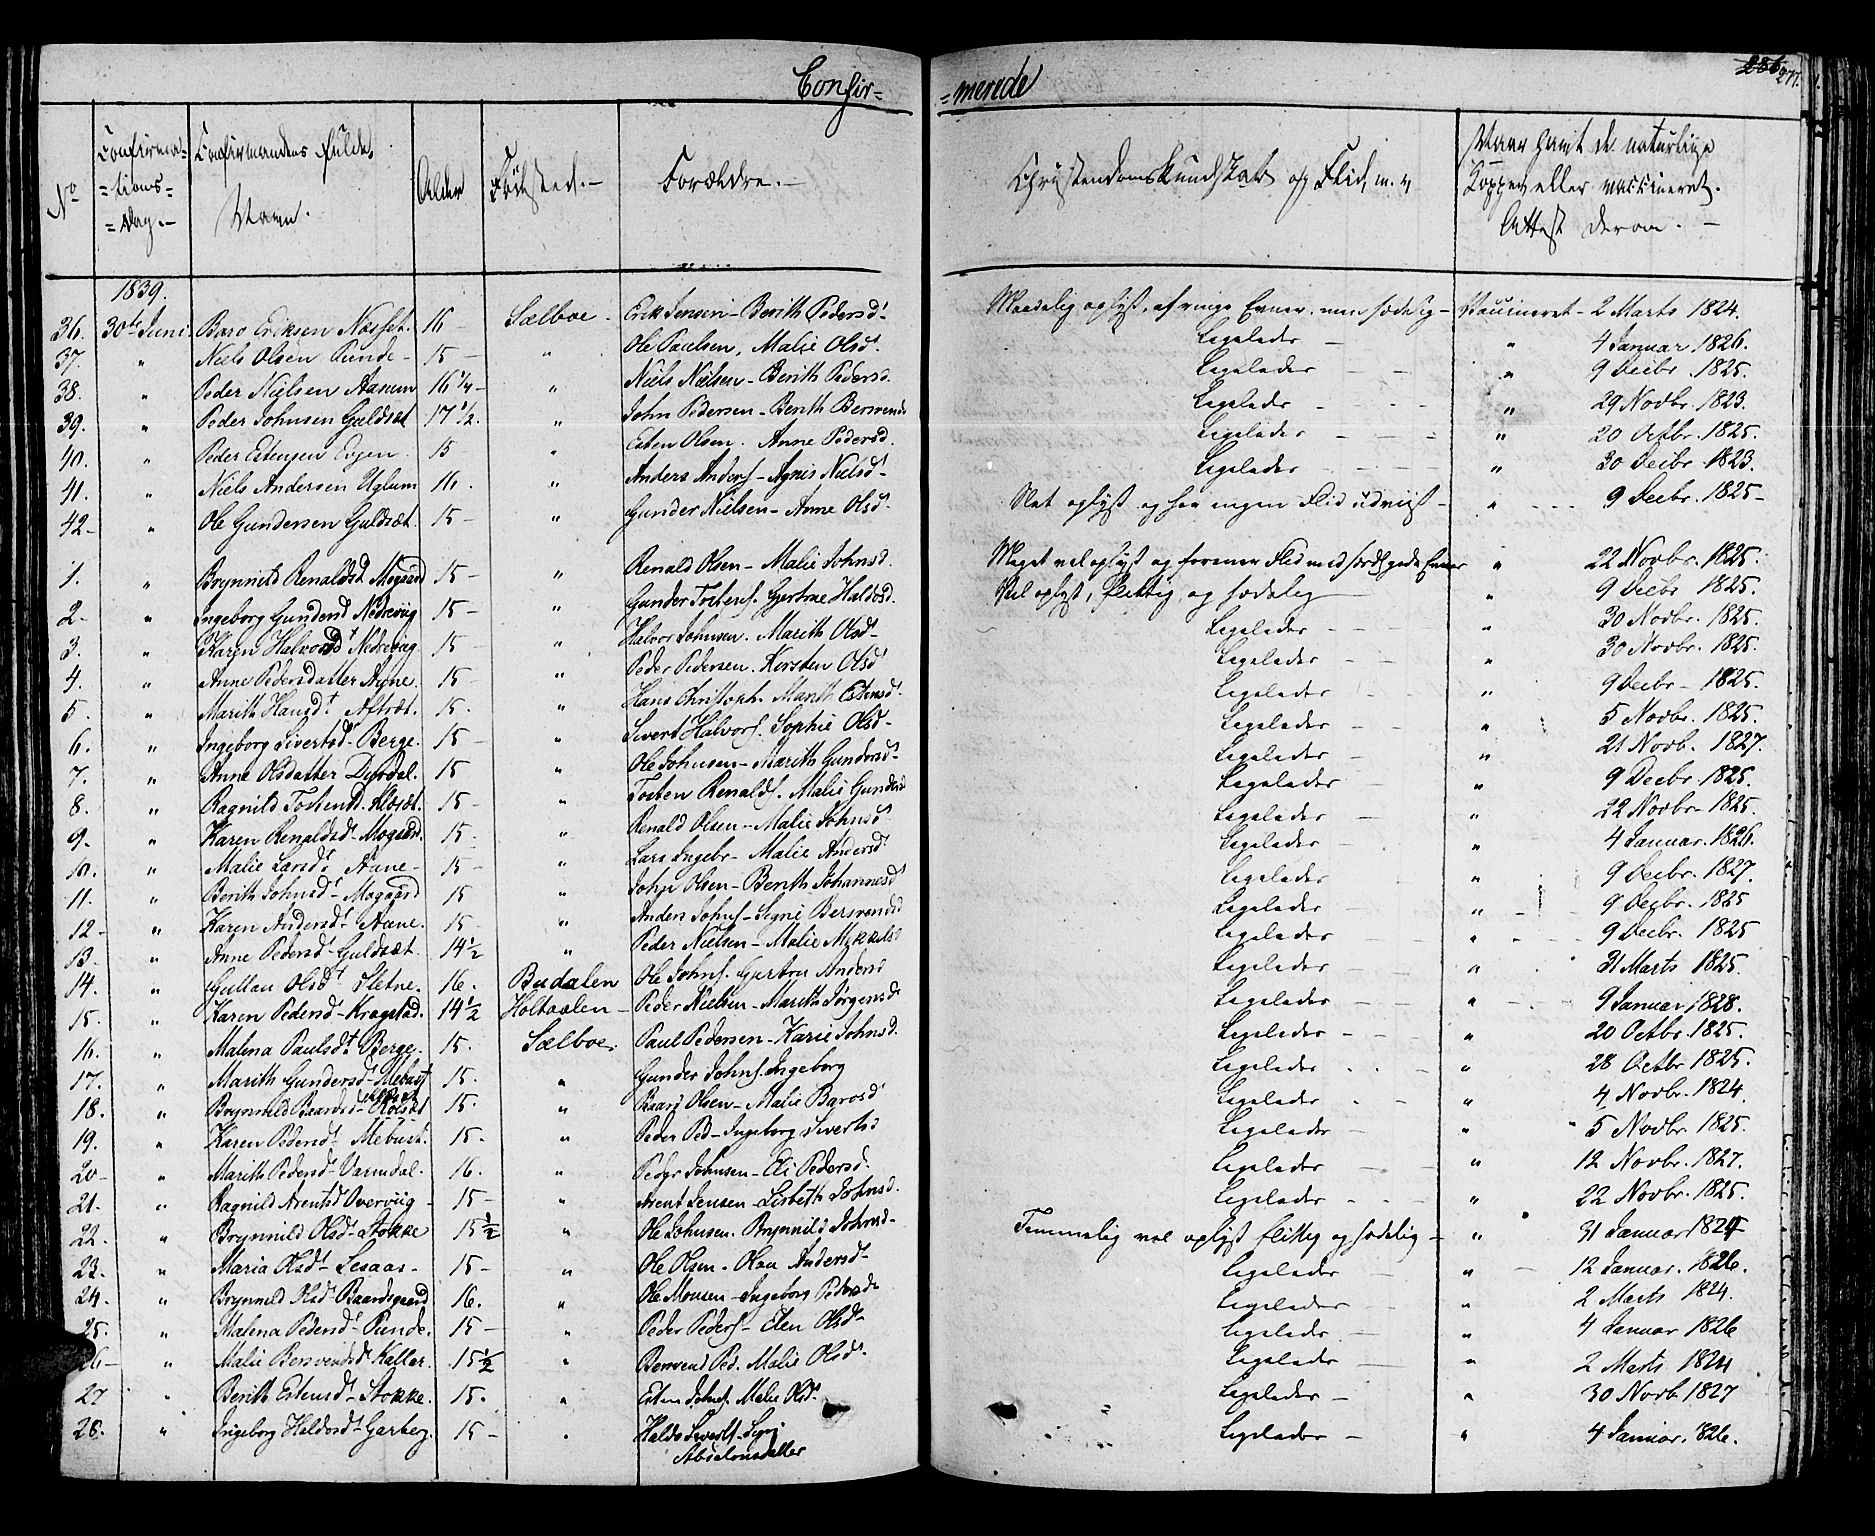 Confir=
=merede
286 277.
No
Confirma=
=tions=
=Dag.-
Confirmandens fulde
Navn.
Alder
Födested.-
Forældre.-
Christendoms Kundskab og Flid, m. v
Naar havt de naturlige
Kopper eller vaccineret.
Attest derom. -
1839.
36. 30te Juni Baro Eriksen Næsset. 16 - Sælboe. Erik Jensen - Berith Pedersd. Maadelig oplyst, af ringe Evner, men sædelig - Vaccineret - 2 Marts 1824.
37. " Niels Olsen Punde - 15 - " Ole Paulsen, Malie Olsd. Ligeledes - " 4 Januar 1826.
38. " Peder Nielsen Aamun 16 1/4 - " Niels Nielsen - Berith Pedersd. Ligeledes - " 9 Decbr. 1825.
39. " Peder Johnsen Guldsæt 17 1/2. " John Pedersen - Berith Bersvends Ligeledes - " 29 Novbr. 1823.
40. " Peder Estensen Evjen. 15 " Esten Olsen. Anne Pedersd. Ligeledes - " 20 Octbr. 1825.
41. " Niels Andersen Uglum 16. " Anders Anders. - Agnis Nielsd - Ligeledes - " 30 Decbr 1823.
42 - " Ole Gundersen Guldsæt. 15 - " Gunder Nielsen - Anne Olsd. Slet oplyst og har ingen Flid udviist - " 9 Decbr. 1825 -
1. " Brynnild Renaldsd. Mogaard 15 - " Renald Olsen - Malie Johnsd. Meget vel oplyst og forener Flid med særdeles gode Evner " 22 Novbr. 1825.
2 - " Ingeborg Gundersd Nedreviig 15 - " Gunder Tostens. Gertrue Haldosd. Vel oplyst, flittig og sædelig " 9 Decbr 1825.
3. " Karen Halvorsdt Nedreviig 15 - " Halvor Johnsen. Marith Olsd - Ligeledes " 30 Novbr. 1825.
4. " Anne Pedersdatter Aune. 15 - " Peder Pedersen. Kirsten Olsd Ligeledes - " 30 Novbr. 1825.
5. " Marith Hansdt Aftræt. 15. " Hans Christoph. Marith Estensd. Ligeledes - " 9 Decbr - 1825.
6. " Ingeborg Sivertsd - Berge. 15 - " Sivert Halvors. Sophie Olsd - Ligeledes - " 5 Novbr. 1825.
7. " Anne Olsdatter Dyrdal. 15 " Ole Johnsen - Marith Gundersd. Ligeledes - " 21 Novb. 1827.
8. " Ragnild Tostensd. Kløsæt. 15 - " Tosten Renalds. Malie Gundersd Ligeledes - " 9 Decbr. 1825.
9. " Karen Renaldsd - Mogaard. 15. " Renald Olsen - Malie Johnsd Ligeledes - " 22 Novbr - 1825.
10. " Malie Larsdt Aune - 15 - " Lars Ingebr - Malie Andersd Ligeledes - " 4 Januar. 1826.
11. " Berith Johnsdt - Mogaard 15 " John Olsen - Berith Johannesd Ligeledes " 9 Decbr. 1827.
12 - " Karen Andersdt Aune. 15 - " Anders Johns - Signe Bersvendsd Ligeledes " 9 Decbr. 1825
13. " Anne Pedersd - Guldsæt. 14 1/2 " Peder Nielsen - Malie Mikkelsd Ligeledes " 9 Decbr. 1825
14. " Gullau Olsdt Sletne. 16. Budalen Ole Johns. Gurtrou Andersd Ligeledes - " 31 Marts 1825.
15. " Karen Pedersd - Kragstad. 14 1/2 Holtaalen - Peder Nielsen - Marith Jörgensd. Ligeledes - " 9 Januar 1828.
16. " Malena Paulsdt Berge. 15. Sælboe. Paul Pedersen - Karie Johnsd. Ligeledes - " 20 Octbr. 1825.
17. " Marith Gundersd - Mebust 15. " Gunder Johns. Ingeborg Ligeledes - " 28 Octbr 1825.
18. " Brynnild Baardsd - 15. " Baard Olsen - Malie Barosd Ligeledes - " 4 Novbr. 1824.
19. " Karen Pedersdt Mebust. 15. " Peder Ped - Ingeborg Sivertsd Ligeledes - " 5 Novbr. 1825.
20 - " Marith Pedersdt Varmdal. 16. " Peder Johnsen - Eli Pedersd. Ligeledes - " 12 Novbr. 1827.
21. " Ragnild Arentsd Overviig - 15 - " Arent Jensen - Lisbeth Johnsd. Ligeledes - " 22 Novbr. 1825.
22. " Brynnild Olsd - Stokke 15 1/2 " Ole Johnsen. Brynnild Johnsd - Temmelig vel oplyst flittig og sædelig - " 31 Januar 1824
23. " Maria Olsdt - Lesaas - 15 - " Ole Olsen - Olau Andersd - Ligeledes - " 12 Januar. 1826.
24. " Brynnild Olsd - Baardsgaard 16. " Ole Monsen - Ingeborg Pedersd. Ligeledes - " 2 Marts 1824.
25. " Malena Pedersdt - Punde. 15 - " Peder Peders - Elen Olsd - Ligeledes - " 4 Januar 1826
26 - " Malie Bersvendsdt Kallar. 15 1/2 " Bersvend Ped. Malie Olsd. Ligeledes - " 2 Marts 1824
27 " Berith Estensdt - Stokke. 15. " Esten Johns. Malie Olsd. Ligeledes - " 30 Novb 1827
28. " Ingeborg Haldosdt Garberg. 15 - " Haldo Sivertss. Sigri Ligeledes - " 4 Januar. 1826.
Absalonsdatter